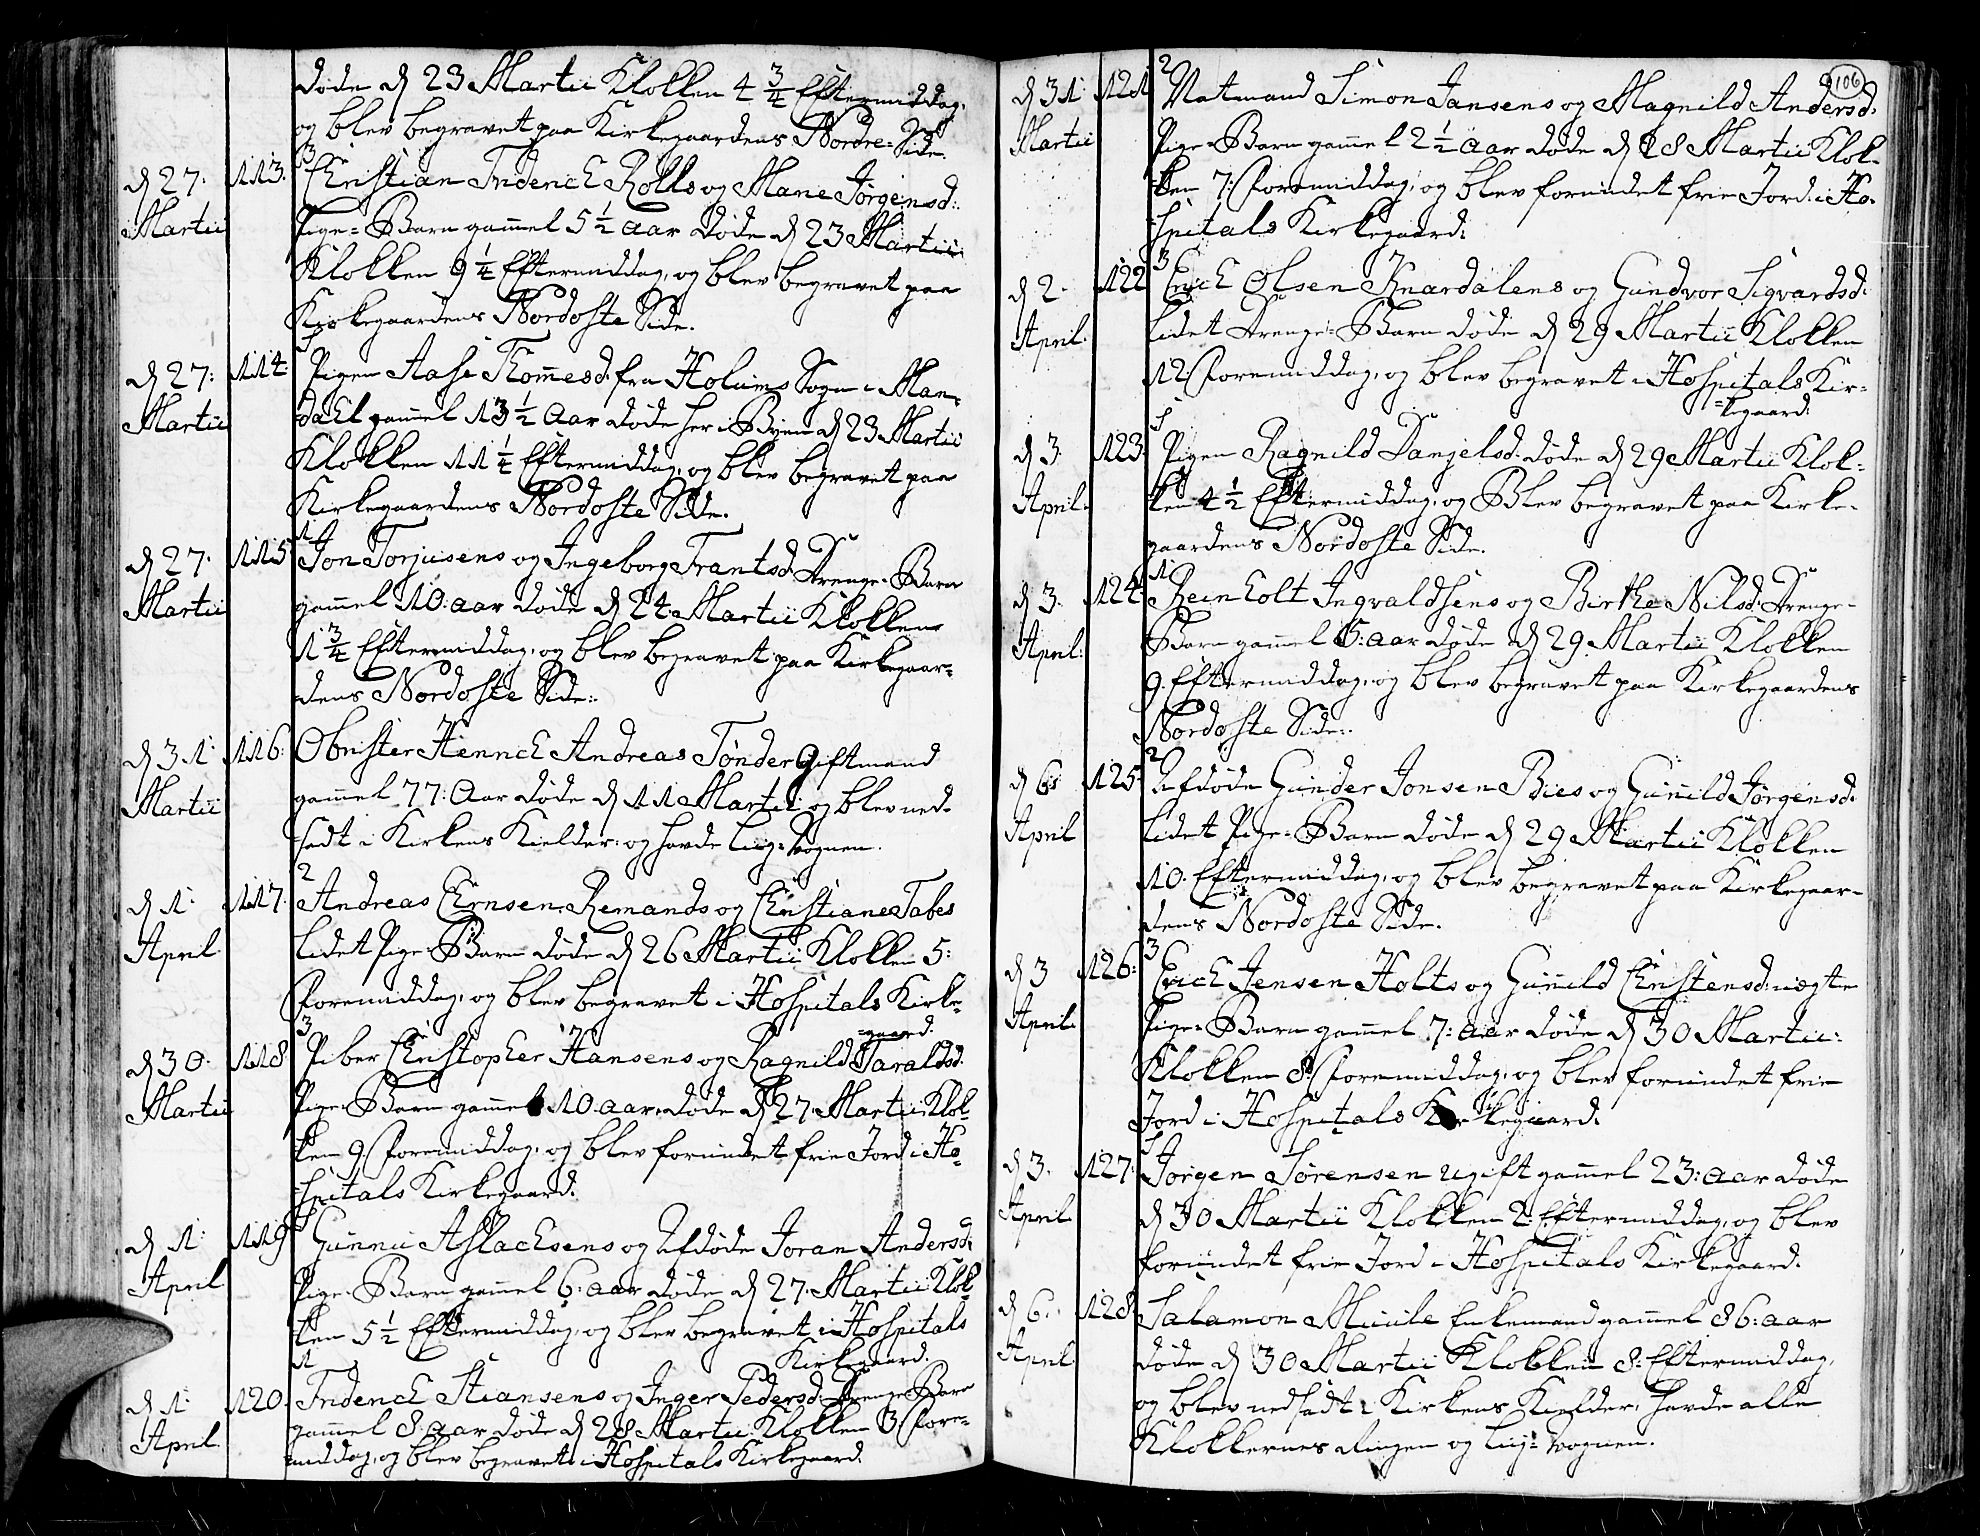 døde d 23 Martii Klokken 4 3/4 Eftermiddag,
og blev begravet paa Kirkegaardens Nordre-Side.
3
d 27: 113. Christian Friderich Rolls og Marie Jørgensd:
Martii Pige-Barn gam̄el 5 1/2 Aar døde d 23 Martii
Klokken 9 1/4 Eftermiddag, og blev begravet paa
Kirkegaardens Nordoste Side.
d 27: 114. Pigen Aase Thom̄esd. fra Holums Sogn i Man-
Martii dahl gam̄el 13 1/2 Aar døde her i Byen d 23 Martii
Klokken 11 1/4 Eftermiddag, og blev begravet paa
Kirkegaardens Nordoste Side.
1
d 27. 115 Jon Torjusens og Ingeborg Frantsd: Drenge-Barn
Martii gam̄el 10: aar døde d 24. Martii Klokken
1 3/4 Eftermiddag, og blev begravet paa Kirkegaar-
dens Nordoste Side:
d 31: 116: Obrister Henrich Andreas Tønder Giftmand
Martii gam̄el 77: Aar døde d 11 Martii og blev ned-
sadt i Kirkens Kielder: og havde Liig-Vognen.
2
d 1: 117. Andreas Ernsen Remands og Christiane Tabes
April. Lidet Pige-Barn døde d 26 Martii Klokken 5:
Formiddag, og blev begravet i Hospitals Kirke-
gaard.
3
d 30. 118 Piber Christopher Hansens og Ragnild Taraldsd.
Martii Pige-Barn gam̄el 10 aar, døde d 27. Martii Klok-
ken 9. Formiddag, og blev forundet frie Jord i Ho-
spitals Kirkegaard.
d 1: 119 Gunnu Aslachsens og Afdøde Joran Andersd:
April Pige-Barn gam̄el 6: aar døde d 27. Martii Klok-
ken 5 1/2 Eftermiddag, og blev begravet i Hospitals
Kirkegaard.
1
d 1: 120. Friderich Stiansens og Inger Pedersd: Drenge-Barn
April gam̄el 8: aar døde d 28 Martii Klokken 3 For-
middag, og blev begravet i Hospitals Kirkegaard.
106
2
d 31: 121 Natmand Simon Jansens og Magnild Andersd.
Martii Pige-Barn gam̄el 2 1/2 aar døde d 28 Martii Klok-
ken 7: Formiddag, og blev forundet frie Jord i Ho-
spitals Kirkegaard.
3
d 2. 122 Erich Olsen Knardalens og Gundvor Sigvardsd:
April. Lidet Drenge-Barn døde d 29 Martii Klokken
12 Formiddag, og blev begravet i Hospitals Kir-
kegaard.
d 3 123. Pigen Ragnild Danjelsd. døde d 29 Martii Klok-
April. ken 4 1/2 Eftermiddag, og Blev begravet paa Kirke-
gaardens Nordoste Side.
1
d 3. 124. Reinholt Ingvaldsens og Birthe Nilsd: Drenge-
April: Barn gam̄el 5: aar døde d 29 Martii Klokken
9. Eftermiddag, og blev begravet paa Kirkegaardens
Nordoste Side.
2
d 6: 125. Afdøde Gunder Jonsen Bies og Gunild Jørgensd.
April Lidet Pige-Barn døde d 29 Martii Klokken
10. Eftermiddag, og blev begravet paa Kirkegaar-
dens Nordoste Side.
3
d 3 126: Erich Jensen Holts og Gunild Christensd: ægte
April. Pige-Barn gam̄el 7: aar døde d 30 Martii:
Klokken 8: Formiddag, og blev forundet frie
Jord i Hospitals Kirkegaard.
d 3. 127: Jørgen Sørensen ugift gam̄el 23: aar døde
April d 30 Martii Klokken 2: Eftermiddag, og blev
forundet frie Jord i Hospitals Kirkegaard.
d 6. 128. Salamon Muule Enkemand gam̄el 86: aar
April døde d 30 Martii Klokken 8: Eftermiddag,
og blev nedsadt i Kirkens Kielder, havde alle
Klokkernes Ringen og Liig-Vognen.